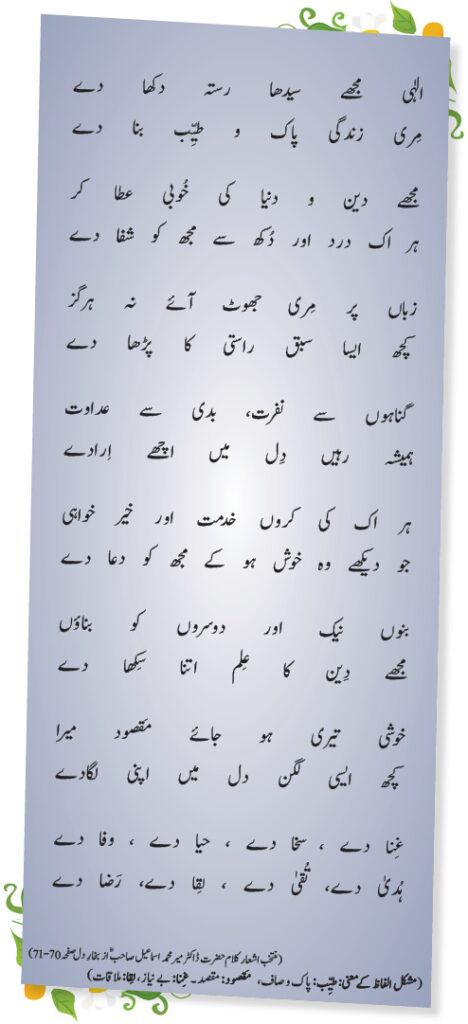 الٰہی مجھے سیدھا رستہ دکھا دے
مِری زندگی پاک و طیِّب بنا دے
مجھے دین و دنیا کی خُوبی عطا کر
ہر اک درد اور دُکھ سے مجھ کو شفا دے
زباں پر مِری جھوٹ آئے نہ ہرگز
کچھ ایسا سبق راستی کا پڑھا دے
گناہوں سے نفرت، بدی سے عداوت
ہمیشہ رہیں دِل میں اچھے اِرادے
ہر اک کی کروں خدمت اور خیر خواہی
جو دیکھے وہ خوش ہو کے مجھ کو دعا دے
بنوں نیک اور دوسروں کو بناؤں
مجھے دِین کا عِلم اتنا سِکھا دے
خوشی تیری ہو جائے مقصود میرا
کچھ ایسی لگن دل میں اپنی لگادے
غِنا دے ، سخا دے ، حیا دے ، وفا دے
ہُدیٰ دے، تُقیٰ دے ، لِقا دے، رَضا دے
(منتخب اشعار کلام حضرت ڈاکٹر میر محمد اسماعیل صاحبؓ از بخار دل صفحہ 70-71)
(مشکل الفاظ کے معنی: طیِّب: پاک و صاف، مقصود: مقصد۔ غِنا: بے نیاز، لِقا: ملاقات)